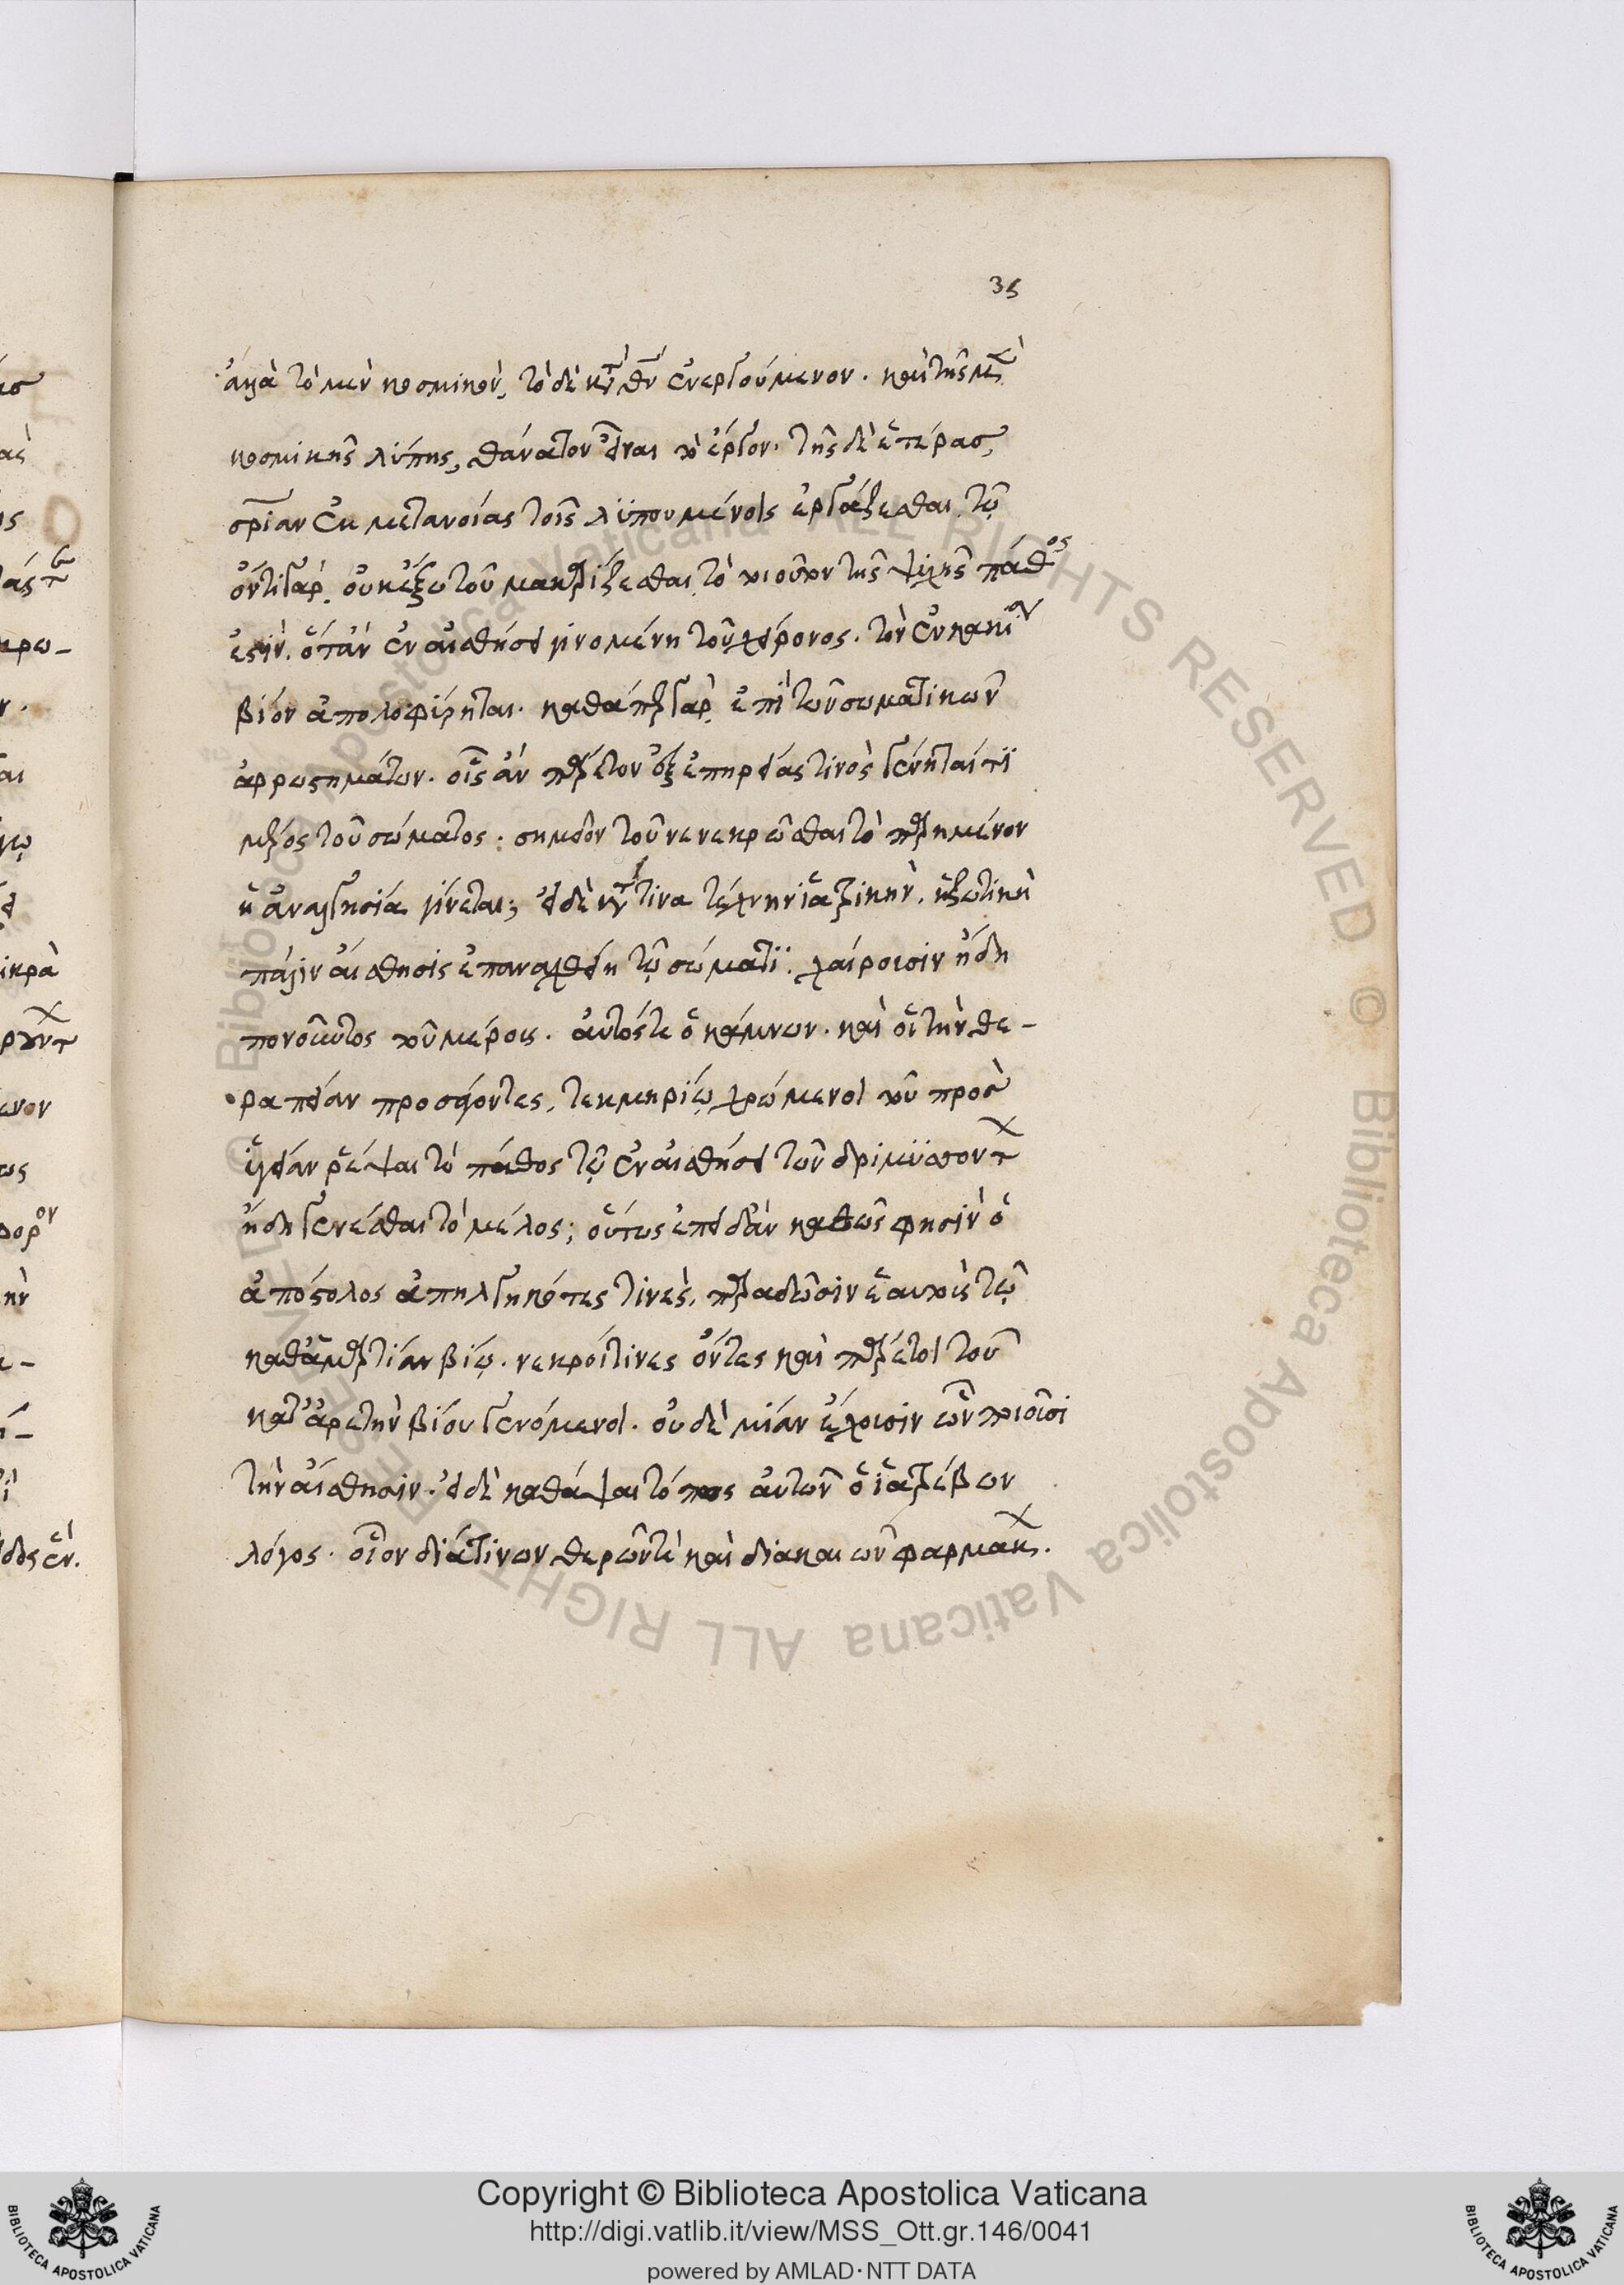 35
ἀλλὰ τὸ μὲν κοσμικὸν, τὸ δὲ κατὰ θεὸν ἐνεργούμενον. καὶ τῆς μὲν
κοσμικῆς λύπης, θάνατον εἶναι τὸ ἔργον. τῆς δὲ ἑτέρας,
σωτηρίαν ἐκ μετανοίας τοῖς λϋπουμένοις ἐργάζεσθαι. τῷ
ὄντι γὰρ. οὐκ ἔξω τοῦ μακαρίζεσθαι τὸ τοιοῦτον τῆς ψυχῆς πάθος
ἐστὶν. ὅταν ἐν αἰσθήσει γινομένη τοῦ χείρονος. τὸν ἐν κακίᾳ
βίον ἀπολοφύρηται. καθάπερ γὰρ ἐπὶ τῶν σωματικῶν
ἀρρωστημάτων. οἷς ἂν πάρετον ἐξ ἐπηρείας τινὸς γένηταί τϊ
μέρος τοῦ σώματος· σημεῖον τοῦ νενεκρῶσθαι τὸ παρειμένον
ἡ ἀναλγησία γίνεται; εἰ δὲ κατά τινα τέχνην ἰατρικὴν, ἡ ζωτικὴ
πάλιν αἴσθησις ἐπαναχθείη τῷ σώματϊ. χαίρουσιν ἤδη
πονοῦντος τοῦ μέρους. αὐτός τε ὁ κάμνων. καὶ οἱ τὴν θε-
ραπείαν προσάγοντες, τεκμηρίῳ χρώμενοι τοῦ πρὸς
ὑγείαν ῥέψαι τὸ πάθος τῷ ἐν αἰσθήσει τῶν δριμϋσσόντων
ἤδη γενέσθαι τὸ μέλος; οὕτως ἐπειδὰν καθώς φησιν ὁ
ἀπόστολος ἀπηλγηκότες τινὲς, παραδῶσιν ἑαυτοὺς τῷ
καθ' ἁμαρτίαν βίῳ. νεκροί τινες ὄντες καὶ πάρετοι τοῦ
κατ' ἀρετὴν βίου γενόμενοι. οὐδὲ μίαν ἔχουσιν ὧν ποιοῦσι
τὴν αἴσθησιν. εἰ δὲ καθάψαιτό πως αὐτῶν ὁ ἰατρεύων
λόγος. οἷον διά τινων θερμῶν τὲ καὶ διακαιῶν φαρμάκων.
Copyright © Biblioteca Apostolica Vaticana
http://digi.vatlib.it/view/MSS_Ott.gr.146/0041
powered by AMLAD·NTT DATA